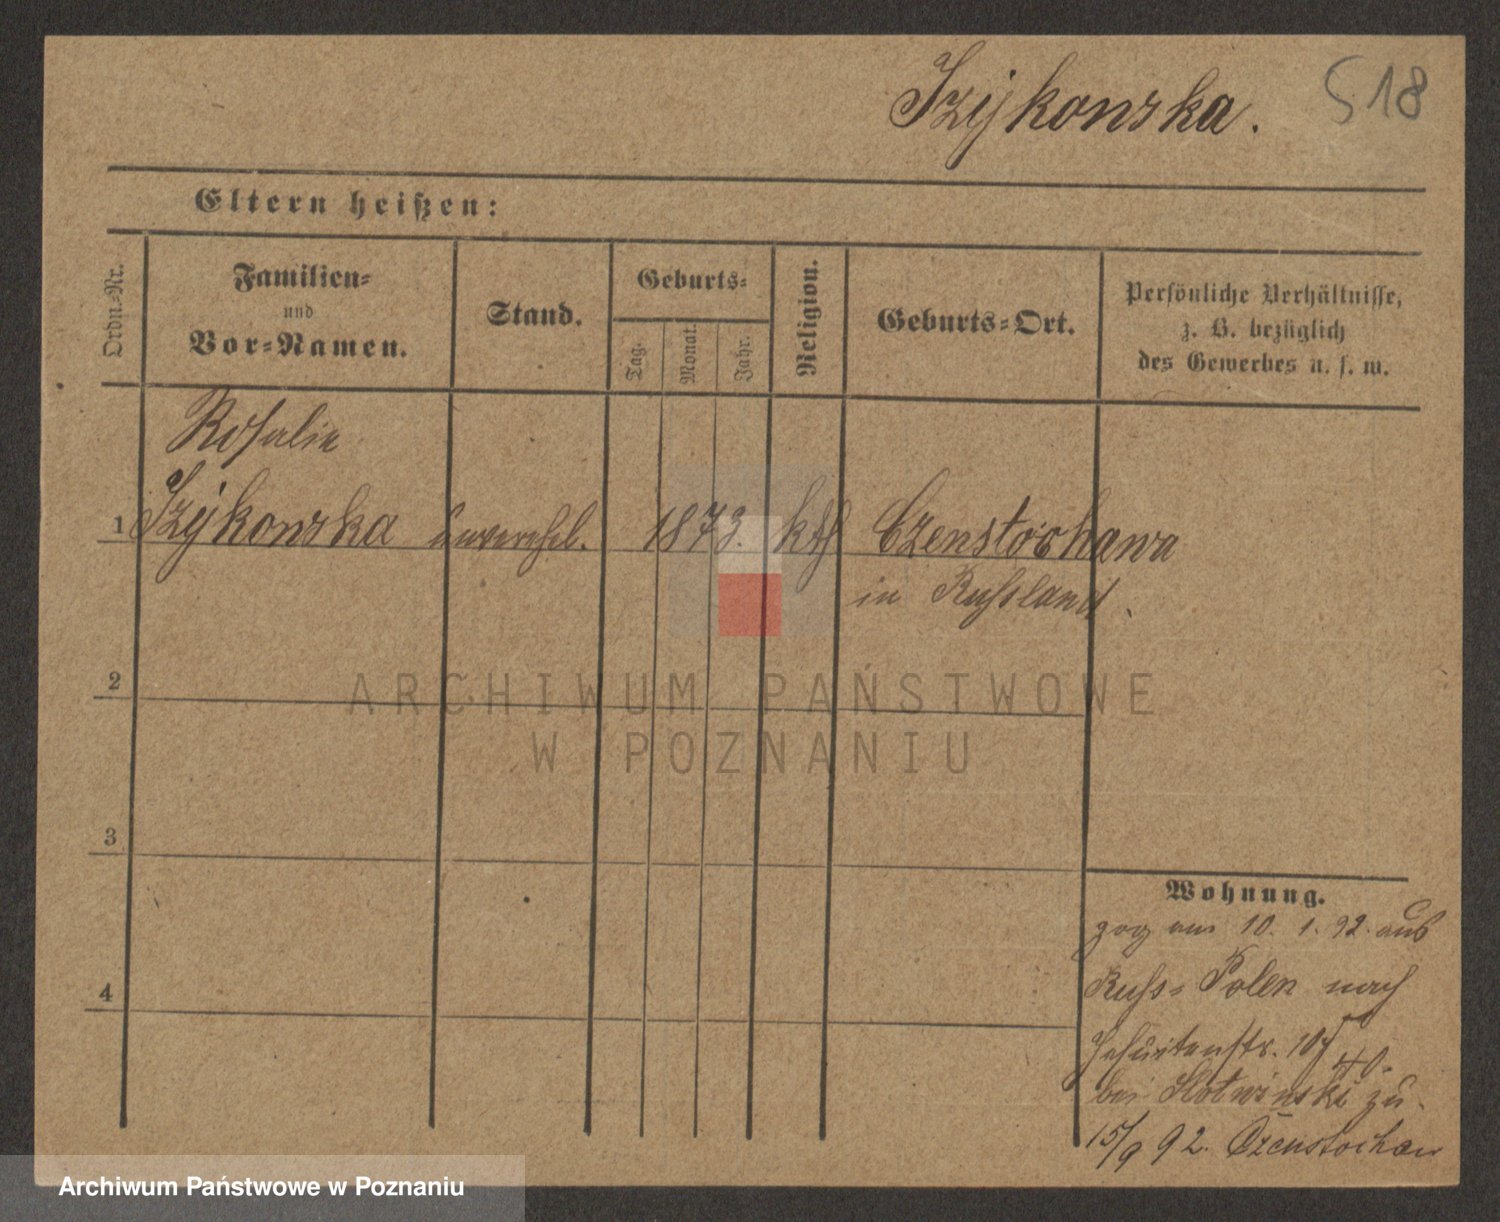 Izykowska. 518
Eltern heißen:
Ordn.-Nr.
Familien-
und
Vor-Namen.
Stand.
Geburts-
Tag.
Monat.
Jahr.
Religion.
Geburts-Ort.
Persönliche Verhältnisse,
z. B. bezüglich
des Gewerbes u. s. w.
Rosalie
1 Izykowska unverehel. 1873. kth Czenstochawa
in Russland.
2
ARCHIWUM PAŃSTWOWE
W POZNANIU
3
4
Wohnung.
zog am 10. 1. 92. aus
Russ- Polen nach
Jesuitenstr. 10
bei Slotwinski zu.
15/9 92. Czenstochau
Archiwum Państwowe w Poznaniu